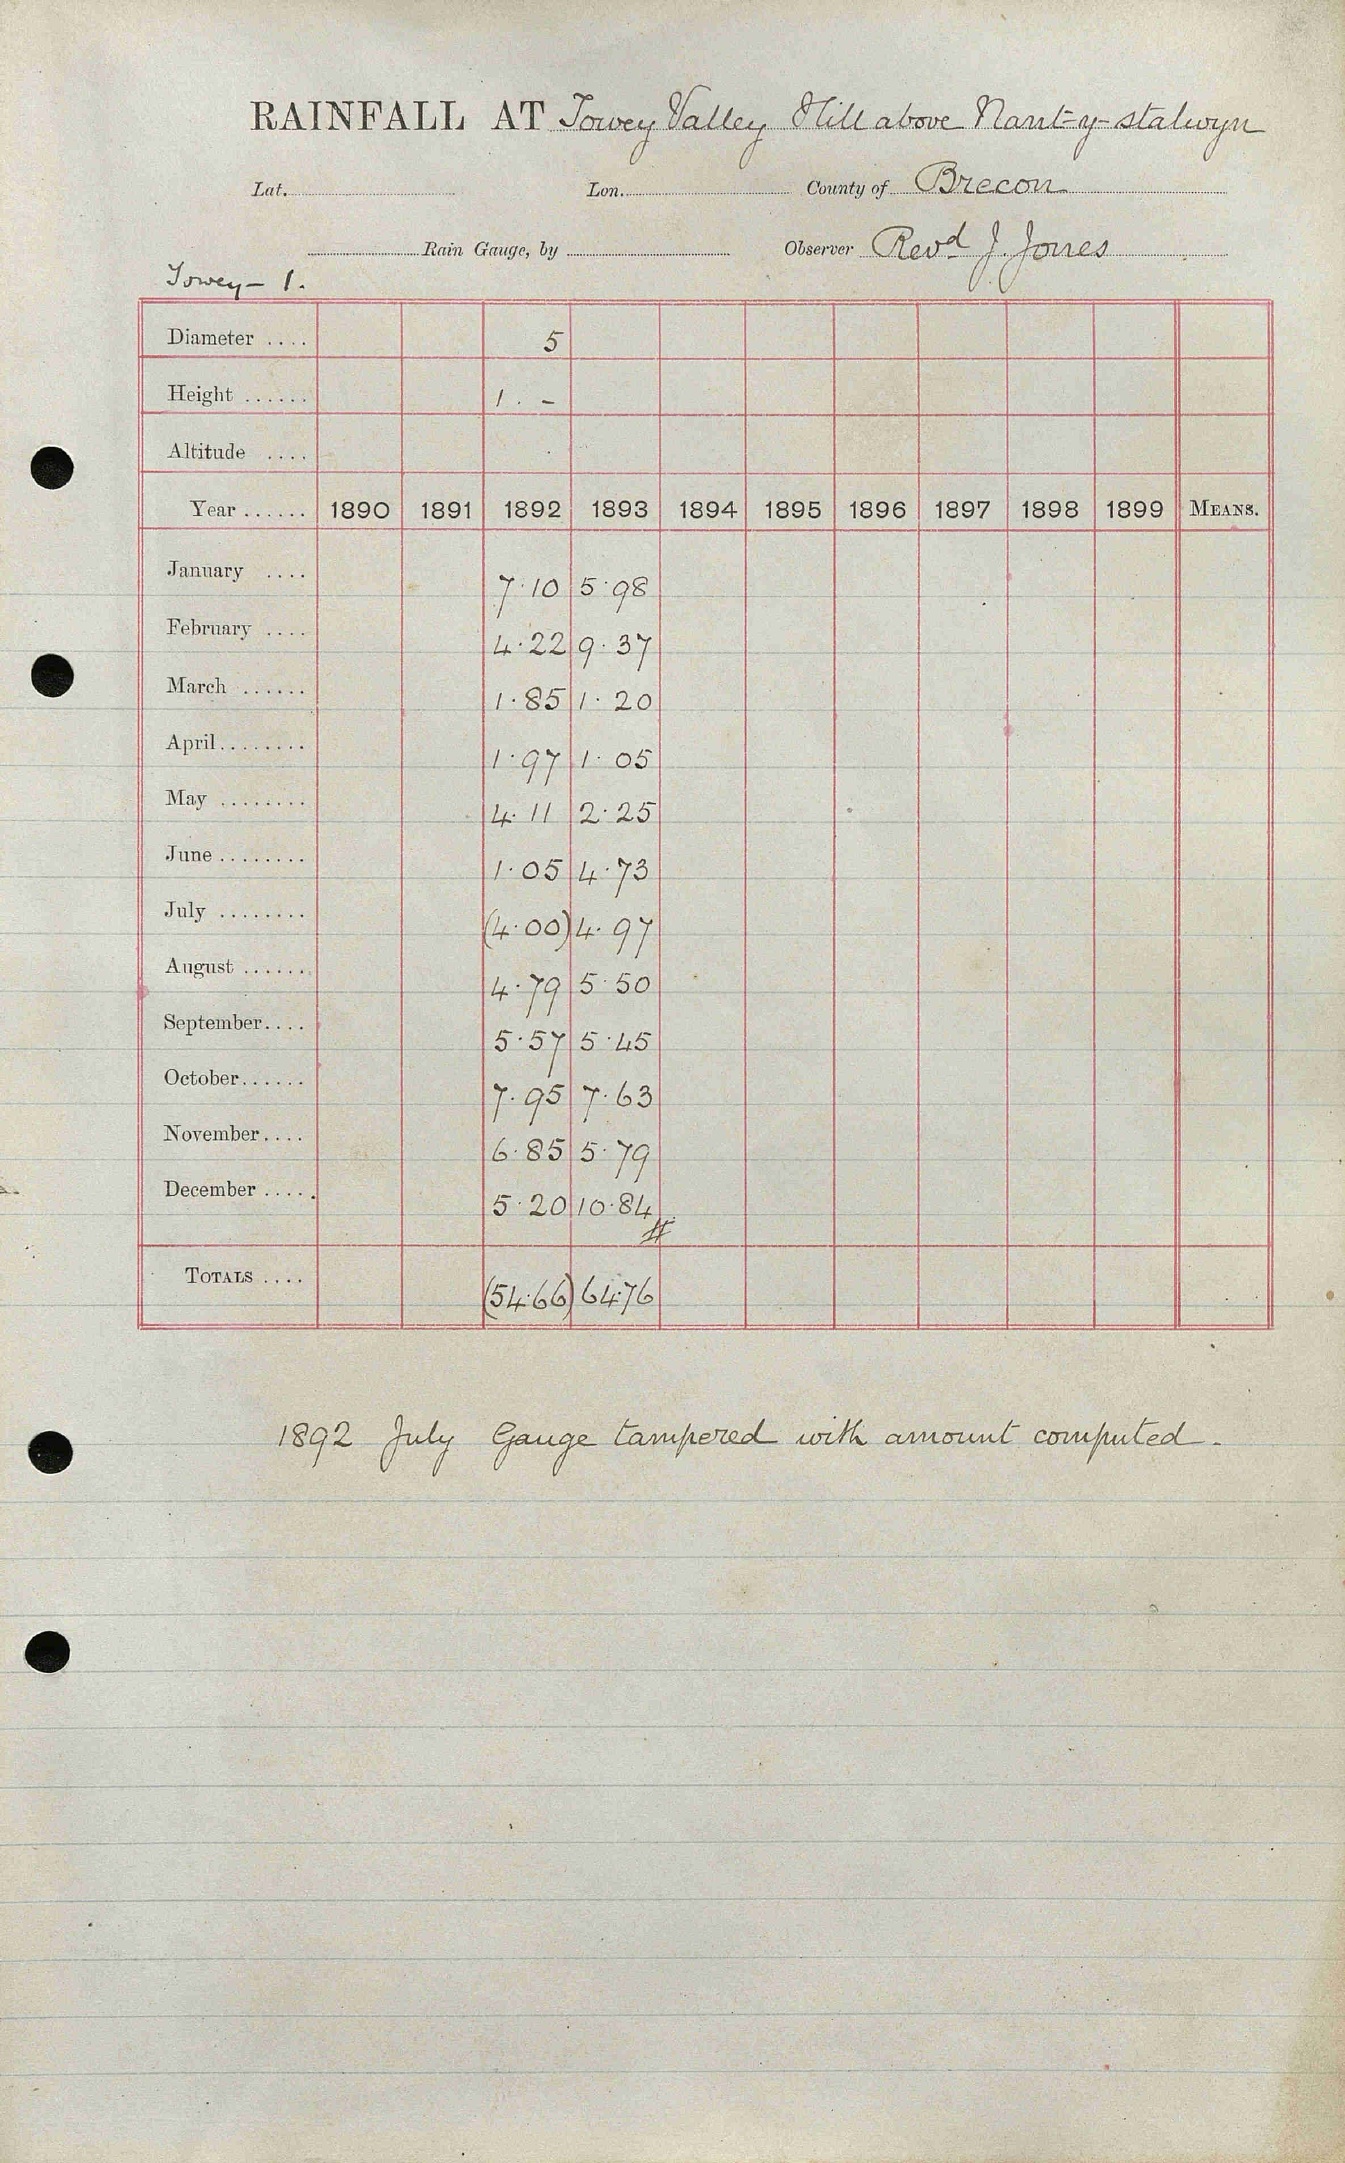 RAINFALL AT Towey Valley Hill above Nant-y-stalwyn
Lat. Lon. County of Brecon
Rain Gauge, by Observer Revd J. Jones
Towey - 1.
Diameter .... 5
Height ...... 1 . -
Altitude ....
Year ...... 1890 1891 1892 1893 1894 1895 1896 1897 1898 1899 MEANS.
January .... 7.10 5.98
February .... 4.22 9.37
March ...... 1.85 1.20
April........ 1.97 1.05
May ........ 4.11 2.25
June ........ 1.05 4.73
July ........ (4.00) 4.97
August ...... 4.79 5.50
September.... 5.57 5.45
October...... 7.95 7.63
November.... 6.85 5.79
December ..... 5.20 10.84
#
TOTALS .... (54.66) 64.76
1892 July Gauge tampered with amount computed.